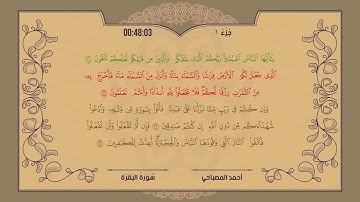 جُزء ١
00:48:03
يَٰٓأَيُّهَا ٱلنَّاسُ ٱعۡبُدُواْ رَبَّكُمُ ٱلَّذِي خَلَقَكُمۡ وَٱلَّذِينَ مِن قَبۡلِكُمۡ لَعَلَّكُمۡ تَتَّقُونَ
ٱلَّذِي جَعَلَ لَكُمُ ٱلۡأَرۡضَ فِرَٰشٗا وَٱلسَّمَآءَ بِنَآءٗ وَأَنزَلَ مِنَ ٱلسَّمَآءِ مَآءٗ فَأَخۡرَجَ بِهِۦ
مِنَ ٱلثَّمَرَٰتِ رِزۡقٗا لَّكُمۡۖ فَلَا تَجۡعَلُواْ لِلَّهِ أَندَادٗا وَأَنتُمۡ تَعۡلَمُونَ
وَإِن كُنتُمۡ فِي رَيۡبٖ مِّمَّا نَزَّلۡنَا عَلَىٰ عَبۡدِنَا فَأۡتُواْ بِسُورَةٖ مِّن مِّثۡلِهِۦ وَٱدۡعُواْ
شُهَدَآءَكُم مِّن دُونِ ٱللَّهِ إِن كُنتُمۡ صَٰدِقِينَ فَإِن لَّمۡ تَفۡعَلُواْ وَلَن تَفۡعَلُواْ
فَٱتَّقُواْ ٱلنَّارَ ٱلَّتِي وَقُودُهَا ٱلنَّاسُ وَٱلۡحِجَارَةُۖ أُعِدَّتۡ لِلۡكَٰفِرِينَ
سورة البقرة
أحمد المصباحي